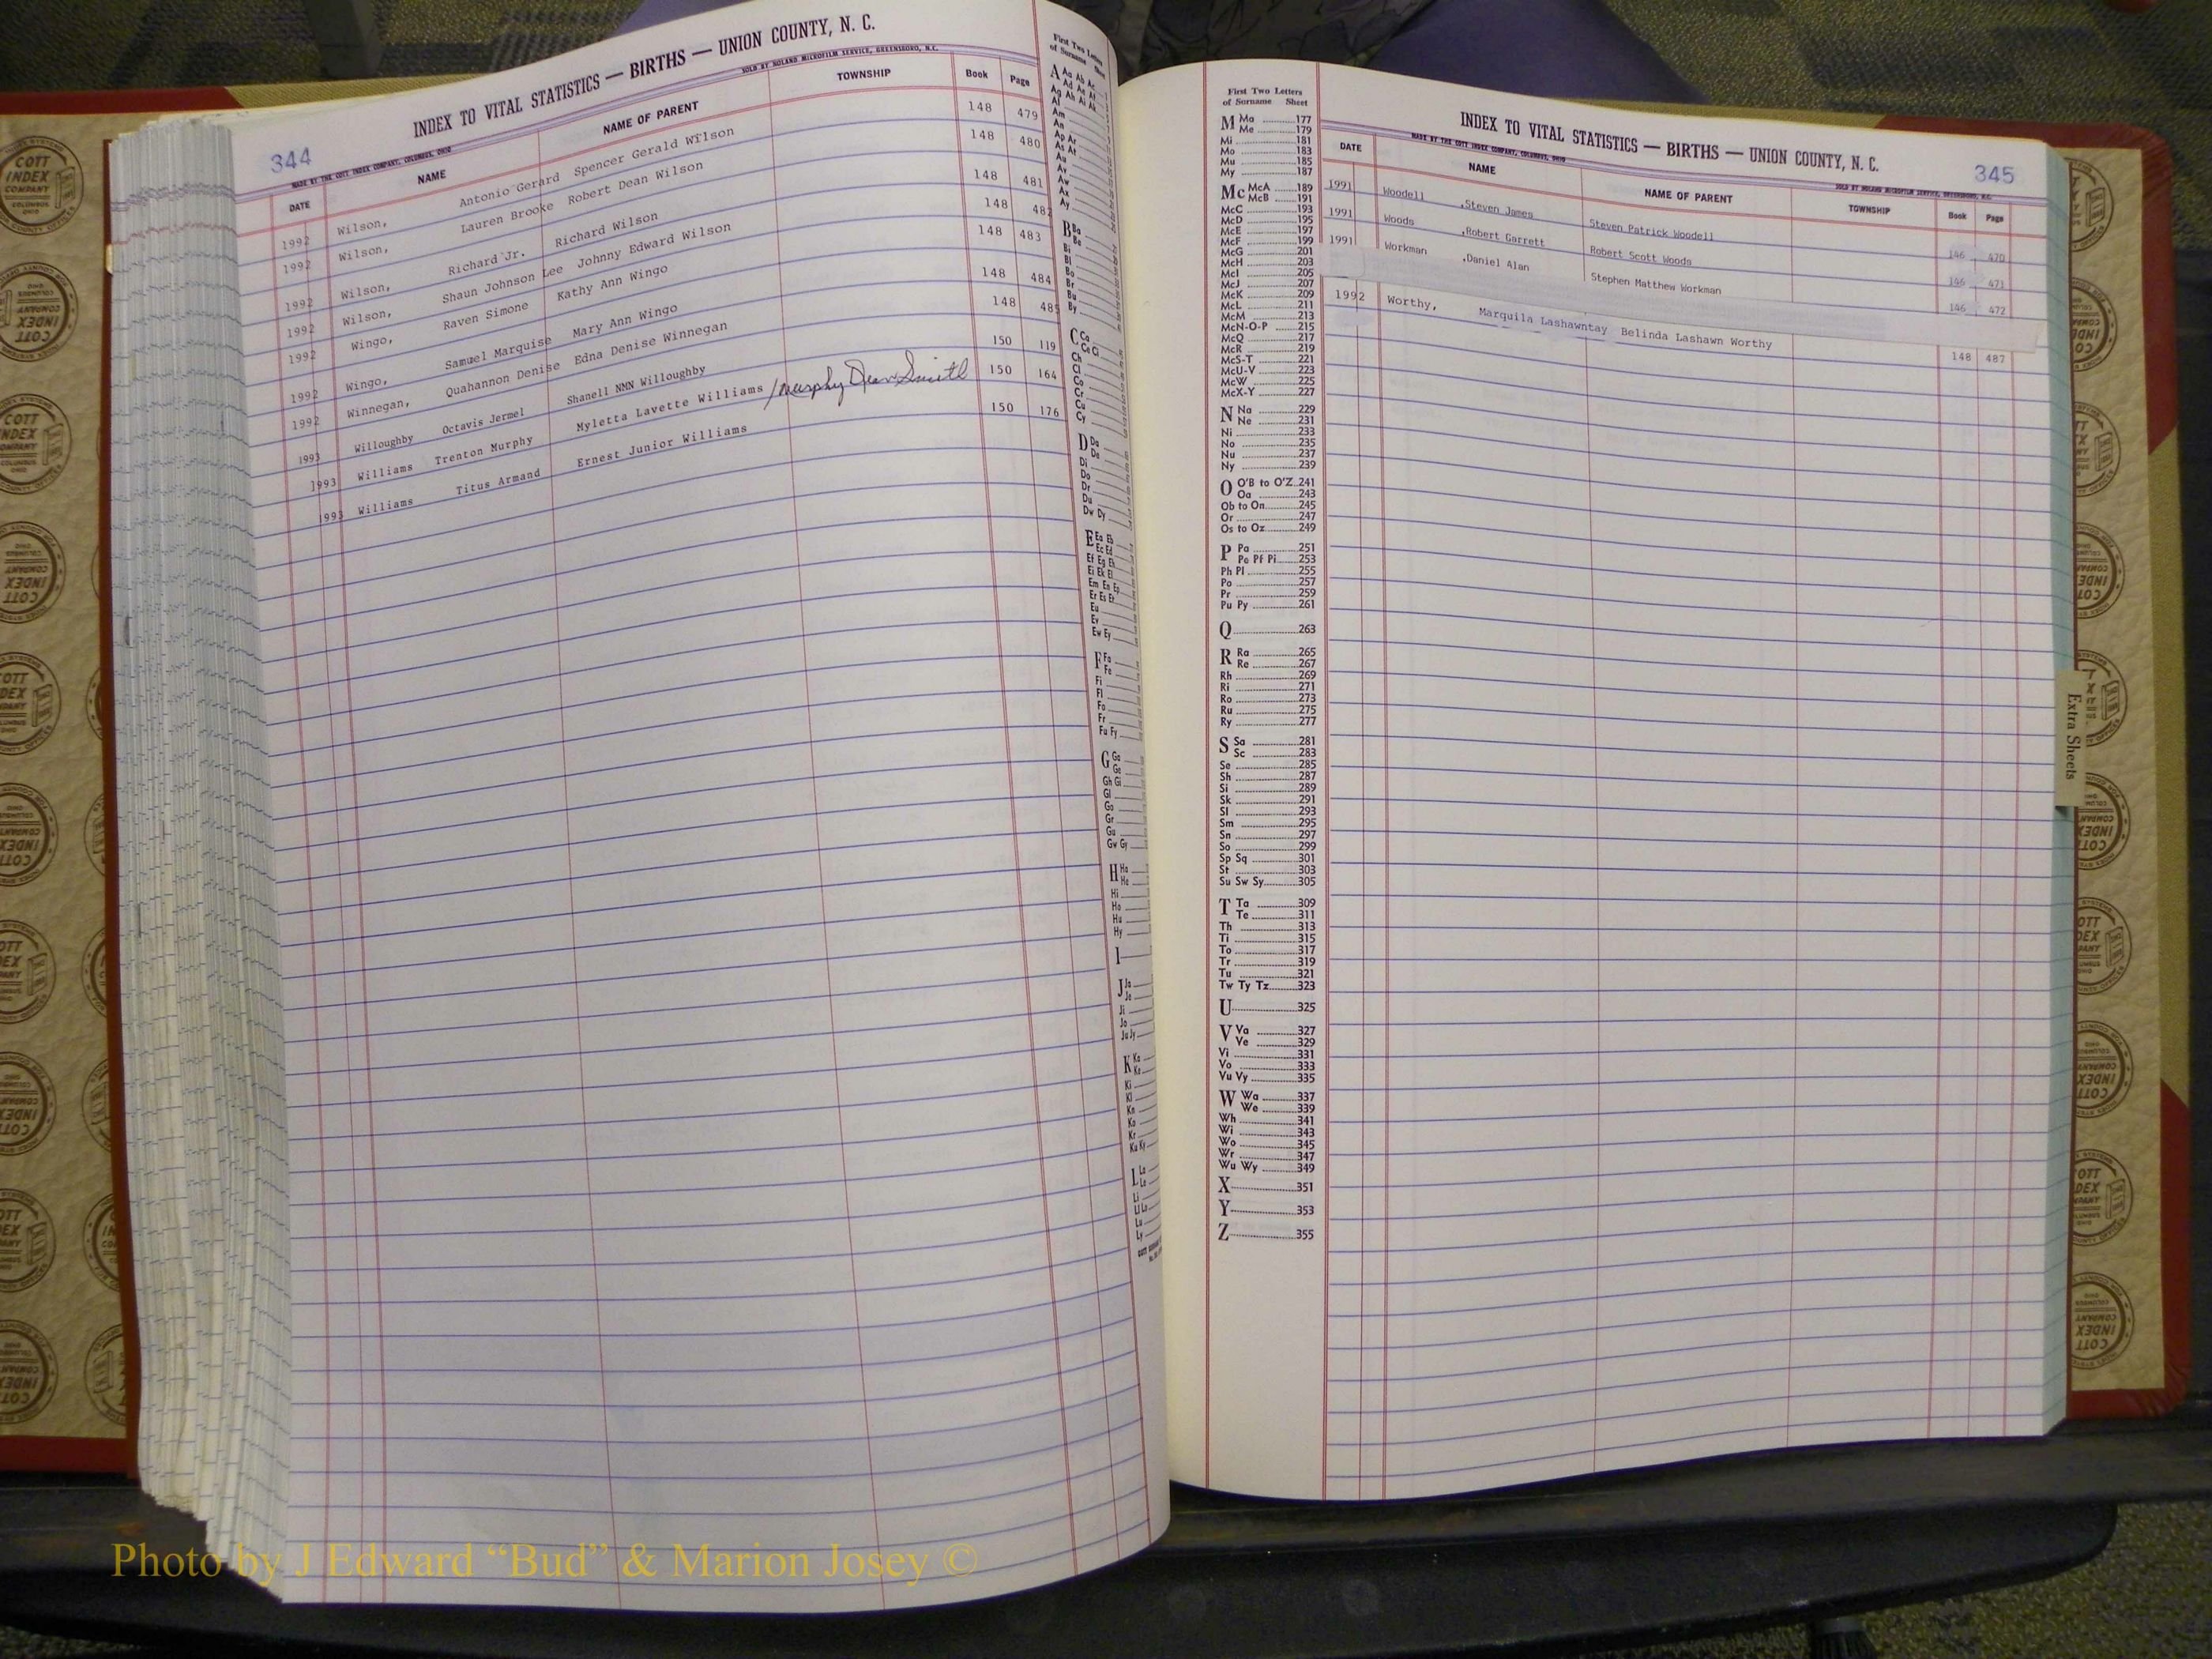 INDEX TO VITAL STATISTICS — BIRTHS — UNION COUNTY, N. C.
344 MADE BY THE COTT INDEX COMPANY, COLUMBUS, OHIO SOLD BY NOLAND MICROFILM SERVICE, GREENSBORO, N.C.
DATE NAME NAME OF PARENT TOWNSHIP Book Page
1992 Wilson, Antonio Gerard Spencer Gerald Wilson 148 479
1992 Wilson, Lauren Brooke Robert Dean Wilson 148 480
1992 Wilson, Richard Jr. Richard Wilson 148 481
1992 Wilson, Shaun Johnson Lee Johnny Edward Wilson 148 482
1992 Wingo, Raven Simone Kathy Ann Wingo 148 483
1992 Wingo, Samuel Marquise Mary Ann Wingo 148 484
1992 Winnegan, Quahannon Denise Edna Denise Winnegan 148 485
1993 Willoughby Octavis Jermel Shanell NMN Willoughby 150 119
1993 Williams Trenton Murphy Myletta Lavette Williams / Murphy Dean Smith 150 164
1993 Williams Titus Armand Ernest Junior Williams 150 176
First Two Letters
of Surname Sheet
A Aa Ab Ac
Ad Ae Af
Ag Ah Ai Ak
Al
Am
An
Ap Ar
As At
Au
Av
Aw
Ax
Ay
B Ba
Be
Bi
Bl
Bo
Br
Bu
By
C Ca
Ce Ci
Ch
Cl
Co
Cr
Cu
Cy
D Da
De
Di
Do
Dr
Du
Dw Dy
E Ea Eb
Ec Ed
Ef Eg Eh
Ei Ek El
Em En Ep
Er Es Et
Eu
Ev
Ew Ey
F Fa
Fe
Fi
Fl
Fo
Fr
Fu Fy
G Ga
Ge
Gh Gi
Gl
Go
Gr
Gu
Gw Gy
H Ha
He
Hi
Ho
Hu
Hy
I
J Ja
Je
Ji
Jo
Ju Jy
K Ka
Ke
Ki
Kl
Kn
Ko
Kr
Ku Ky
L La
Le
Li
Ll Lo
Lu
Ly
First Two Letters
of Surname Sheet
M Ma 177
Me 179
Mi 181
Mo 183
Mu 185
My 187
Mc McA 189
McB 191
McC 193
McD 195
McE 197
McF 199
McG 201
McH 203
McI 205
McJ 207
McK 209
McL 211
McM 213
McN-O-P 215
McQ 217
McR 219
McS-T 221
McU-V 223
McW 225
McX-Y 227
N Na 229
Ne 231
Ni 233
No 235
Nu 237
Ny 239
O O'B to O'Z 241
Oa 243
Ob to On 245
Or 247
Os to Oz 249
P Pa 251
Pe Pf Pi 253
Ph Pl 255
Po 257
Pr 259
Pu Py 261
Q 263
R Ra 265
Re 267
Rh 269
Ri 271
Ro 273
Ru 275
Ry 277
S Sa 281
Sc 283
Se 285
Sh 287
Si 289
Sk 291
Sl 293
Sm 295
Sn 297
So 299
Sp Sq 301
St 303
Su Sw Sy 305
T Ta 309
Te 311
Th 313
Ti 315
To 317
Tr 319
Tu 321
Tw Ty Tz 323
U 325
V Va 327
Ve 329
Vi 331
Vo 333
Vu Vy 335
W Wa 337
We 339
Wh 341
Wi 343
Wo 345
Wr 347
Wu Wy 349
X 351
Y 353
Z 355
INDEX TO VITAL STATISTICS — BIRTHS — UNION COUNTY, N. C. 345
MADE BY THE COTT INDEX COMPANY, COLUMBUS, OHIO SOLD BY NOLAND MICROFILM SERVICE, GREENSBORO, N.C.
DATE NAME NAME OF PARENT TOWNSHIP Book Page
1991 Woodell ,Steven James Steven Patrick Woodell 146 470
1991 Woods ,Robert Garrett Robert Scott Woods 146 471
1991 Workman ,Daniel Alan Stephen Matthew Workman 146 472
1992 Worthy, Marquila Lashawntay Belinda Lashawn Worthy 148 487
Extra Sheets
Photo by J Edward “Bud” & Marion Josey ©